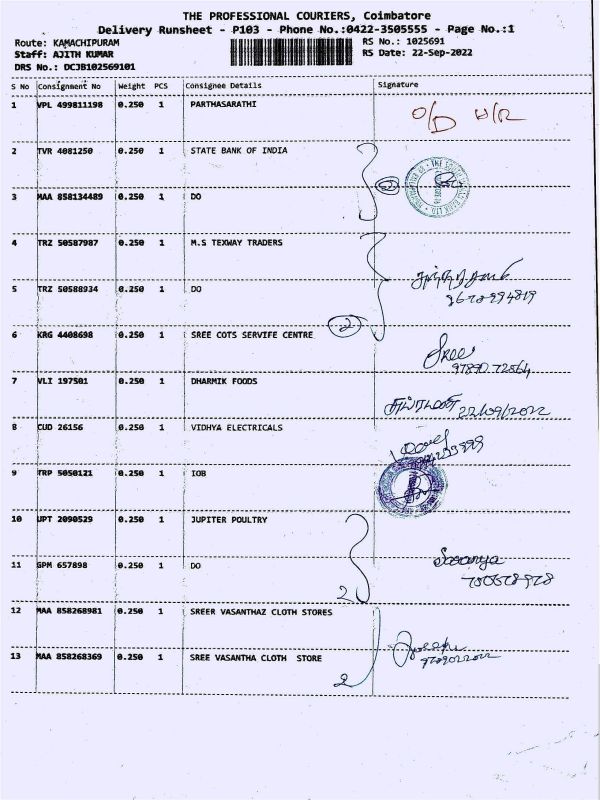 THE PROFESSIONAL COURIERS, Coimbatore
Delivery Runsheet - P103 - Phone No.:0422-3505555 - Page No.:1
Route: KAMACHIPURAM RS No.: 1025691
Staff: AJITH KUMAR RS Date: 22-Sep-2022
DRS No.: DCJB102569101
S No Consignment No Weight PCS Consignee Details Signature
1 VPL 499811198 0.250 1 PARTHASARATHI O/D
2 TVR 4081250 0.250 1 STATE BANK OF INDIA
3 MAA 858134489 0.250 1 DO 2
4 TRZ 50587987 0.250 1 M.S TEXWAY TRADERS
5 TRZ 50588934 0.250 1 DO
2
6 KRG 4408698 0.250 1 SREE COTS SERVIFE CENTRE Sree
7 VLI 197501 0.250 1 DHARMIK FOODS
22/09/2022
8 CUD 26156 0.250 1 VIDHYA ELECTRICALS
9 TRP 5050121 0.250 1 IOB
10 UPT 2090529 0.250 1 JUPITER POULTRY
11 GPM 657898 0.250 1 DO Saranya
2
12 MAA 858268981 0.250 1 SREER VASANTHAZ CLOTH STORES
13 MAA 858268369 0.250 1 SREE VASANTHA CLOTH STORE
2